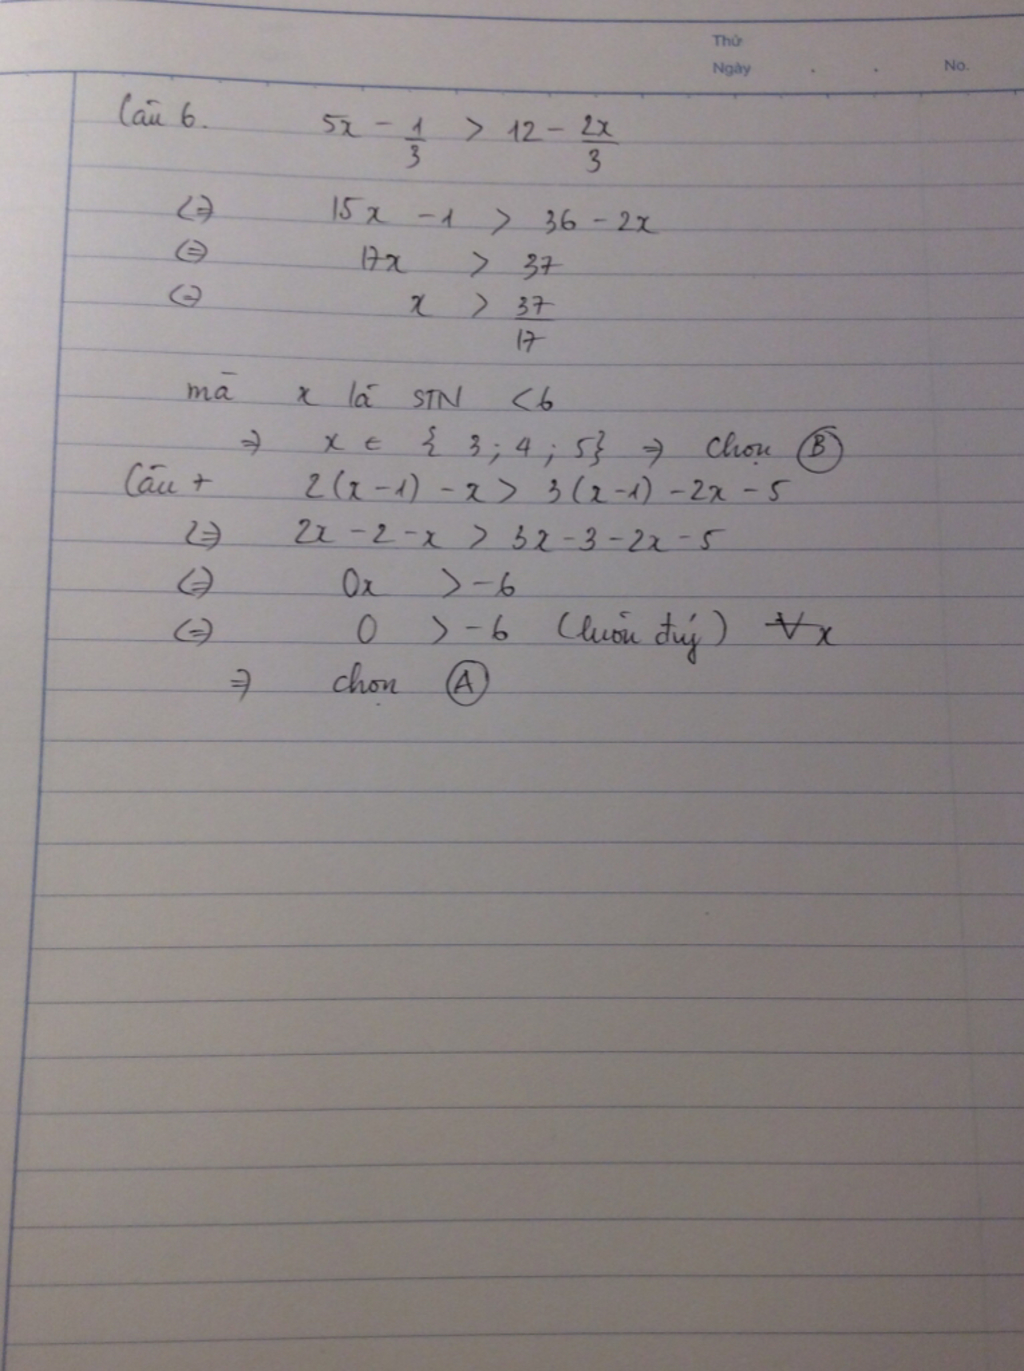 Thứ
Ngày . . No.
Câu 6. 5x - 1/3 > 12 - 2x/3
<=> 15x - 1 > 36 - 2x
<=> 17x > 37
<=> x > 37/17
mà x là STN < 6
=> x ∈ { 3 ; 4 ; 5} => Chọn B
Câu 7 2(x-1) - x > 3(x-1) - 2x - 5
<=> 2x - 2 - x > 3x - 3 - 2x - 5
<=> 0x > -6
<=> 0 > -6 (luôn đúg) ∀x
=> chọn A